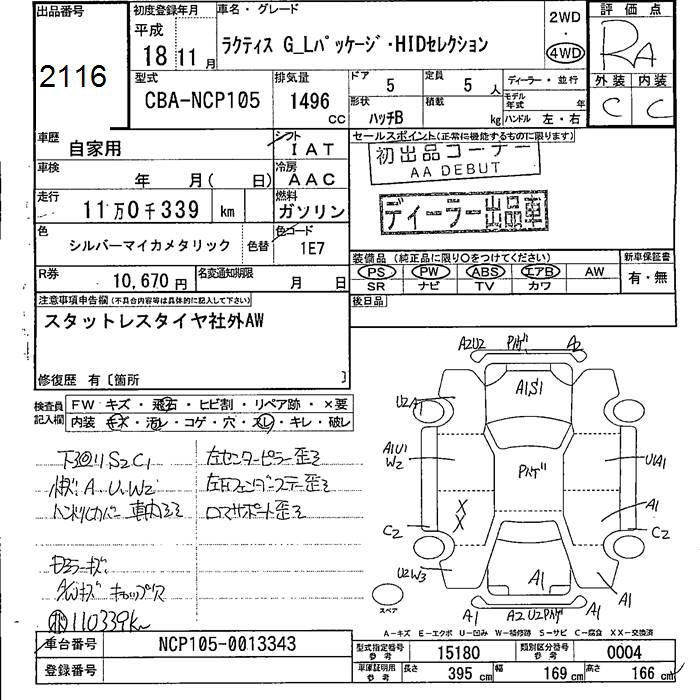 出品番号
2116
初度登録年月
平成
18 11 月
車名・グレード
ラクティス G_Lパッケージ・HIDセレクション
2WD
・
4WD
評価点
RA
型式
CBA-NCP105
排気量
1496
cc
ドア
5
定員
5 人
形状
ハッチB
積載
kg
ディーラー・並行
モデル年式 年
ハンドル 左・右
外装 内装
C C
車歴
自家用
シフト
IAT
車検
年 月( 日)
冷房
AAC
走行
11万0千339 km
燃料
ガソリン
色
シルバーマイカメタリック
色替
色コード
1E7
R券
10,670 円
名変通知期限
月 日
セールスポイント(正常に機能するものに限ります)
初出品コーナー
AA DEBUT
ディーラー出品車
装備品 (純正品に限り○をつけてください)
PS PW ABS エアB AW
SR ナビ TV カワ
新車保証書
有・無
後日品
注意事項申告欄(不具合内容等は具体的に記入して下さい)
スタットレスタイヤ社外AW
修復歴 有〔箇所 〕
検査員記入欄
FW キズ・飛石・ヒビ割・リペア跡・×要
内装 キズ・汚レ・コゲ・穴・スレ・キレ・破レ
下廻りS2C1
A U W2
ハンドルカバー
左センターピラー歪ミ
歪ミ
サポート歪ミ
AWキズ キャップ欠
110339km
A2U2 バンパ A2
A1S1
U2A1
A1U1
W2
バンパ
U1A1
A1
X
X
C2
C2
U2W3
A1
A1
A1 A2U2バンパ A1
スペア
A-キズ E-エクボ U-凹み W-補修跡 S-サビ C-腐食 XX-交換済
車台番号
NCP105-0013343
登録番号
型式指定番号
参考
15180
類別区分番号
参考
0004
車庫証明用
参考
長さ
395 cm
幅
169 cm
高さ
166 cm